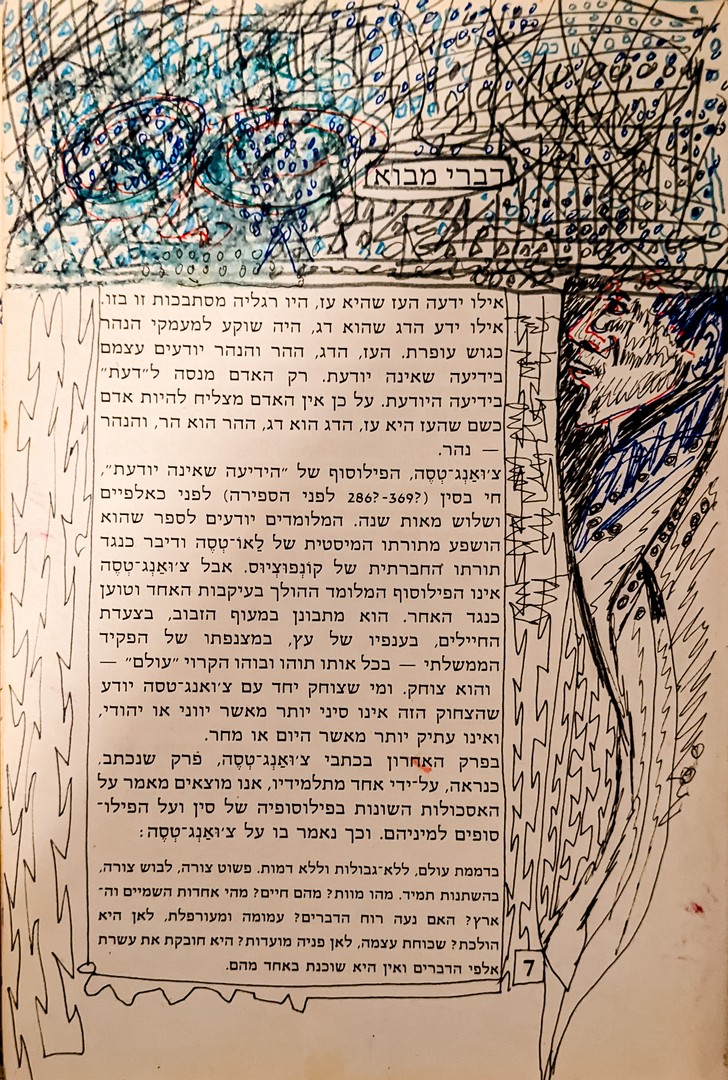 דברי מבוא
אילו ידעה העז שהיא עז, היו רגליה מסתבכות זו בזו.
אילו ידע הדג שהוא דג, היה שוקע למעמקי הנהר
כגוש עופרת. העז, הדג, ההר והנהר יודעים עצמם
בידיעה שאינה יודעת. רק האדם מנסה ל״דעת״
בידיעה היודעת. על כן אין האדם מצליח להיות אדם
כשם שהעז היא עז, הדג הוא דג, ההר הוא הר, והנהר
— נהר.
צ׳וּאַנְג־טְסֶה, הפילוסוף של ״הידיעה שאינה יודעת״,
חי בסין (369?-286? לפני הספירה) לפני כאלפיים
ושלוש מאות שנה. המלומדים יודעים לספר שהוא
הושפע מתורתו המיסטית של לַאוֹ־טְסֶה ודיבר כנגד
תורתו החברתית של קוֹנְפוּצְיוּס. אבל צ׳וּאַנְג־טְסֶה
אינו הפילוסוף המלומד ההולך בעיקבות האחד וטוען
כנגד האחר. הוא מתבונן במעוף הזבוב, בצעדת
החיילים, בענפיו של עץ, במצנפתו של הפקיד
הממשלתי — בכל אותו תוהו ובוהו הקרוי ״עולם״ —
והוא צוחק. ומי שצוחק יחד עם צ׳ואנג־טסה יודע
שהצחוק הזה אינו סיני יותר מאשר יווני או יהודי,
ואינו עתיק יותר מאשר היום או מחר.
בפרק האחרון בכתבי צ׳וּאַנְג־טְסֶה, פרק שנכתב,
כנראה, על־ידי אחד מתלמידיו, אנו מוצאים מאמר על
האסכולות השונות בפילוסופיה של סין ועל הפילו־
סופים למיניהם. וכך נאמר בו על צ׳וּאַנְג־טְסֶה:
בדממת עולם, ללא־גבולות וללא דמות. פשוט צורה, לבוש צורה,
בהשתנות תמיד. מהו מוות? מהם חיים? מהי אחדות השמיים וה־
ארץ? האם נעה רוח הדברים? עמומה ומעורפלת, לאן היא
הולכת? שכוחת עצמה, לאן פניה מועדות? היא חובקת את עשרת
אלפי הדברים ואין היא שוכנת באחד מהם.
7